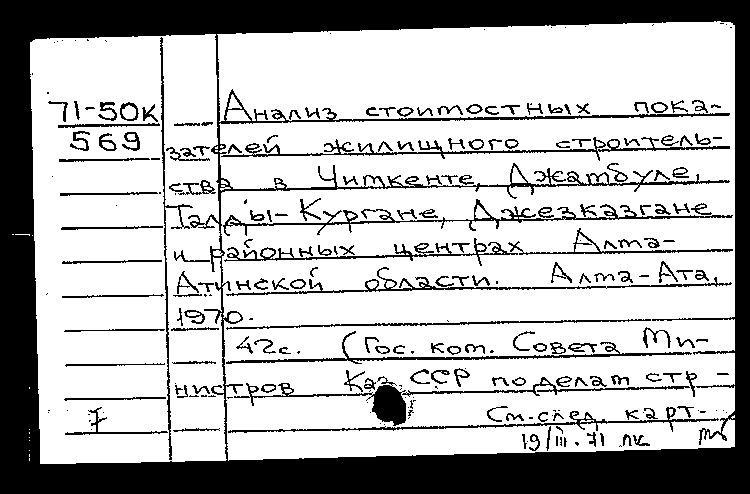 71-50к Анализ стоимостных пока-
569 зателей жилищного строитель-
ства в Чимкенте, Джамбуле,
Талды-Кургане, Джезказгане
и районных центрах Алма-
Атинской области. Алма-Ата,
1970.
42с. (Гос. ком. Совета Ми-
нистров Каз ССР по делам стр-
См. след. карт-
19/III.71 лк